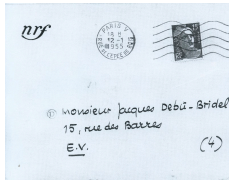 nrf
PARIS V
18 H
12-1
1955
Monsieur Jacques Debû-Bridel
15, rue des Barres
E.V. (4)